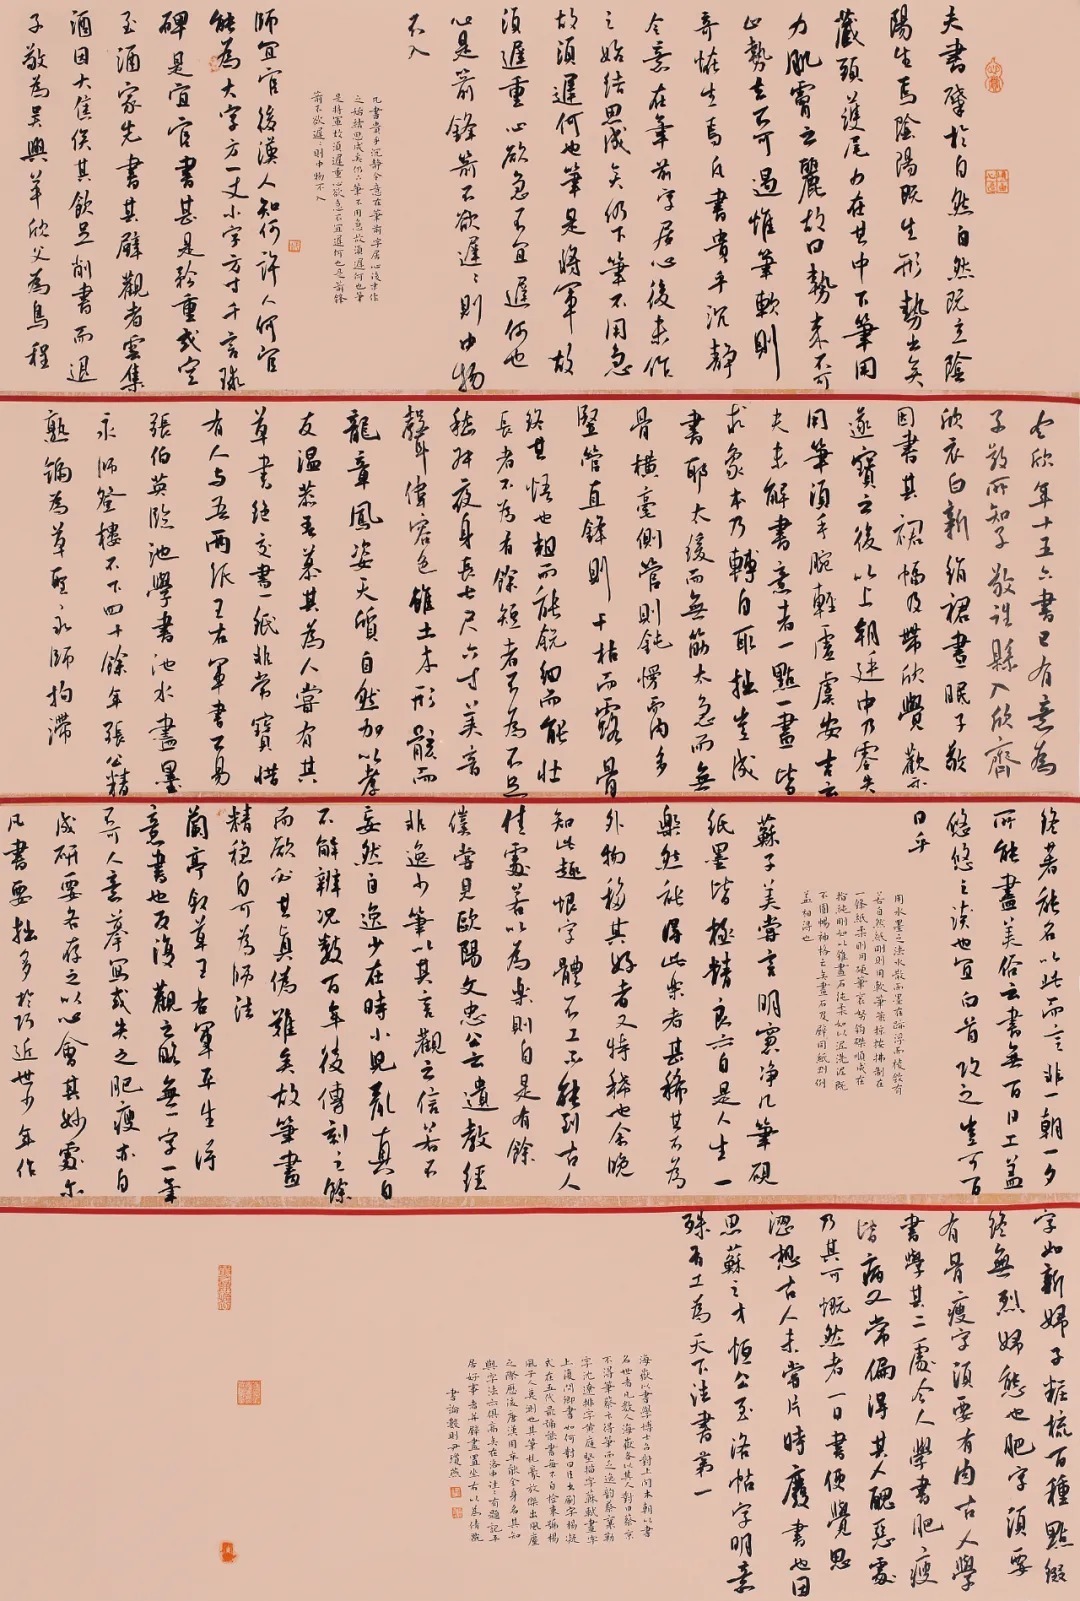 夫書肇於自然自然既立陰
陽生焉陰陽既生形勢出矣
藏頭護尾力在其中下筆用
力肌膚之麗故曰勢來不可
止勢去不可遏惟筆軟則
奇怪生焉凡書貴乎沉靜
令意在筆前字居心後未作
之始結思成矣仍下筆不用急
故須遲何也筆是將軍故
須遲重心欲急不宜遲何也
心是箭鋒箭不欲遲〻則中物
不入
凡書貴乎沉靜令意在筆前字居心後未作
之始結思成矣仍下筆不用急故須遲何也筆
是將軍故須遲重心欲急不宜遲何也是箭鋒
箭不欲遲〻則中物不入
師宜官後漢人知何許人何官
能為大字方一丈小字方寸千言球
碑是宜官書甚是矜重或空
至酒家先書其壁觀者雲集
酒因大售俟其飲足削書而退
子敬為吳興羊欣父為烏程
令欣年十五六書已有意為
子敬所知子敬往縣入欣齋
欣衣白新絹裙晝眠子敬
因書其裙幅及帶欣覺歡示
遂寶之後以上朝廷中乃零失
用筆須手腕輕虛虞安吉云
夫未解書意者一點一畫皆
求象本乃轉自取拙豈成
書耶太緩而無筋太急而無
骨橫毫側管則鈍慢而肉多
豎管直鋒則干枯而露骨
終其悟也粗而能銳細而能壯
長者不為有餘短者不為不足
嵇叔夜身長七尺六寸美音
聲偉容色雖土木形骸而
龍章鳳姿天質自然加以孝
友溫恭吾慕其為人嘗有其
草書絕交書一紙非常寶惜
有人与吾兩紙王右軍書不易
張伯英臨池學書池水盡墨
永師登樓不下四十餘年張公精
熟號為草聖永師拘滯
終著能名以此而言非一朝一夕
所能盡美俗云書無百日工蓋
悠悠之談也宜白首攻之豈可百
日乎
用水墨之法水散而墨在跡浮而稜斂有
若自然紙剛則用軟筆策掠按拂制在
一條紙柔則用硬筆袞努鉤磔順成在
指純剛如以錐畫石純柔如以泥洗泥既
不圓暢神格亡矣畫石及壁用紙剛例
蓋相得也
蘇子美嘗言明窗淨几筆硯
紙墨皆極精良亦自是人生一
樂然能得此樂者甚稀其不為
外物移其好者又特稀也余晚
知此趣恨字體不工不能到古人
佳處若以為樂則自是有餘
僕嘗見歐陽文忠公云遺教經
非逸少筆以其言觀之信若不
妄然自逸少在時小兒亂真自
不解辨況數百年後傳刻之餘
而欲必其真偽難矣故筆畫
精穩自可為師法
蘭亭敘草王右軍平生得
意書也反復觀之略無一字一筆
不可人意摹寫或失之肥瘦亦自
成妍要各存之以心會其妙處尔
凡書要拙多於巧近世少年作
字如新婦子粧梳百種點綴
終無烈婦態也肥字須要
有骨瘦字須要有肉古人學
書學其二處今人學書肥瘦
皆病又常偏得其人醜惡處
乃其可慨然者一日書便覺思
澀想古人未嘗片時廢書也因
思蘇之才恒公至洛帖字明意
殊有工為天下法書第一
海嶽以書學博士召對上問本朝以書
名世者凡數人海嶽各以其人對曰蔡京
不得筆蔡卞得筆而乏逸韵蔡襄勒
字沈遼排字黃庭堅描字蘇軾畫字
上復問卿書如何對曰臣書刷字楊凝
式在五代最號能書每不自檢束號楊
風子人莫測也其筆札豪放傑出風塵
之際歷後唐漢周卒能全身名其知
與字法亦俱高矣在洛中往〻有題記平
居好事者并壁畫置坐右以為清玩
書論數則尹瓊燕